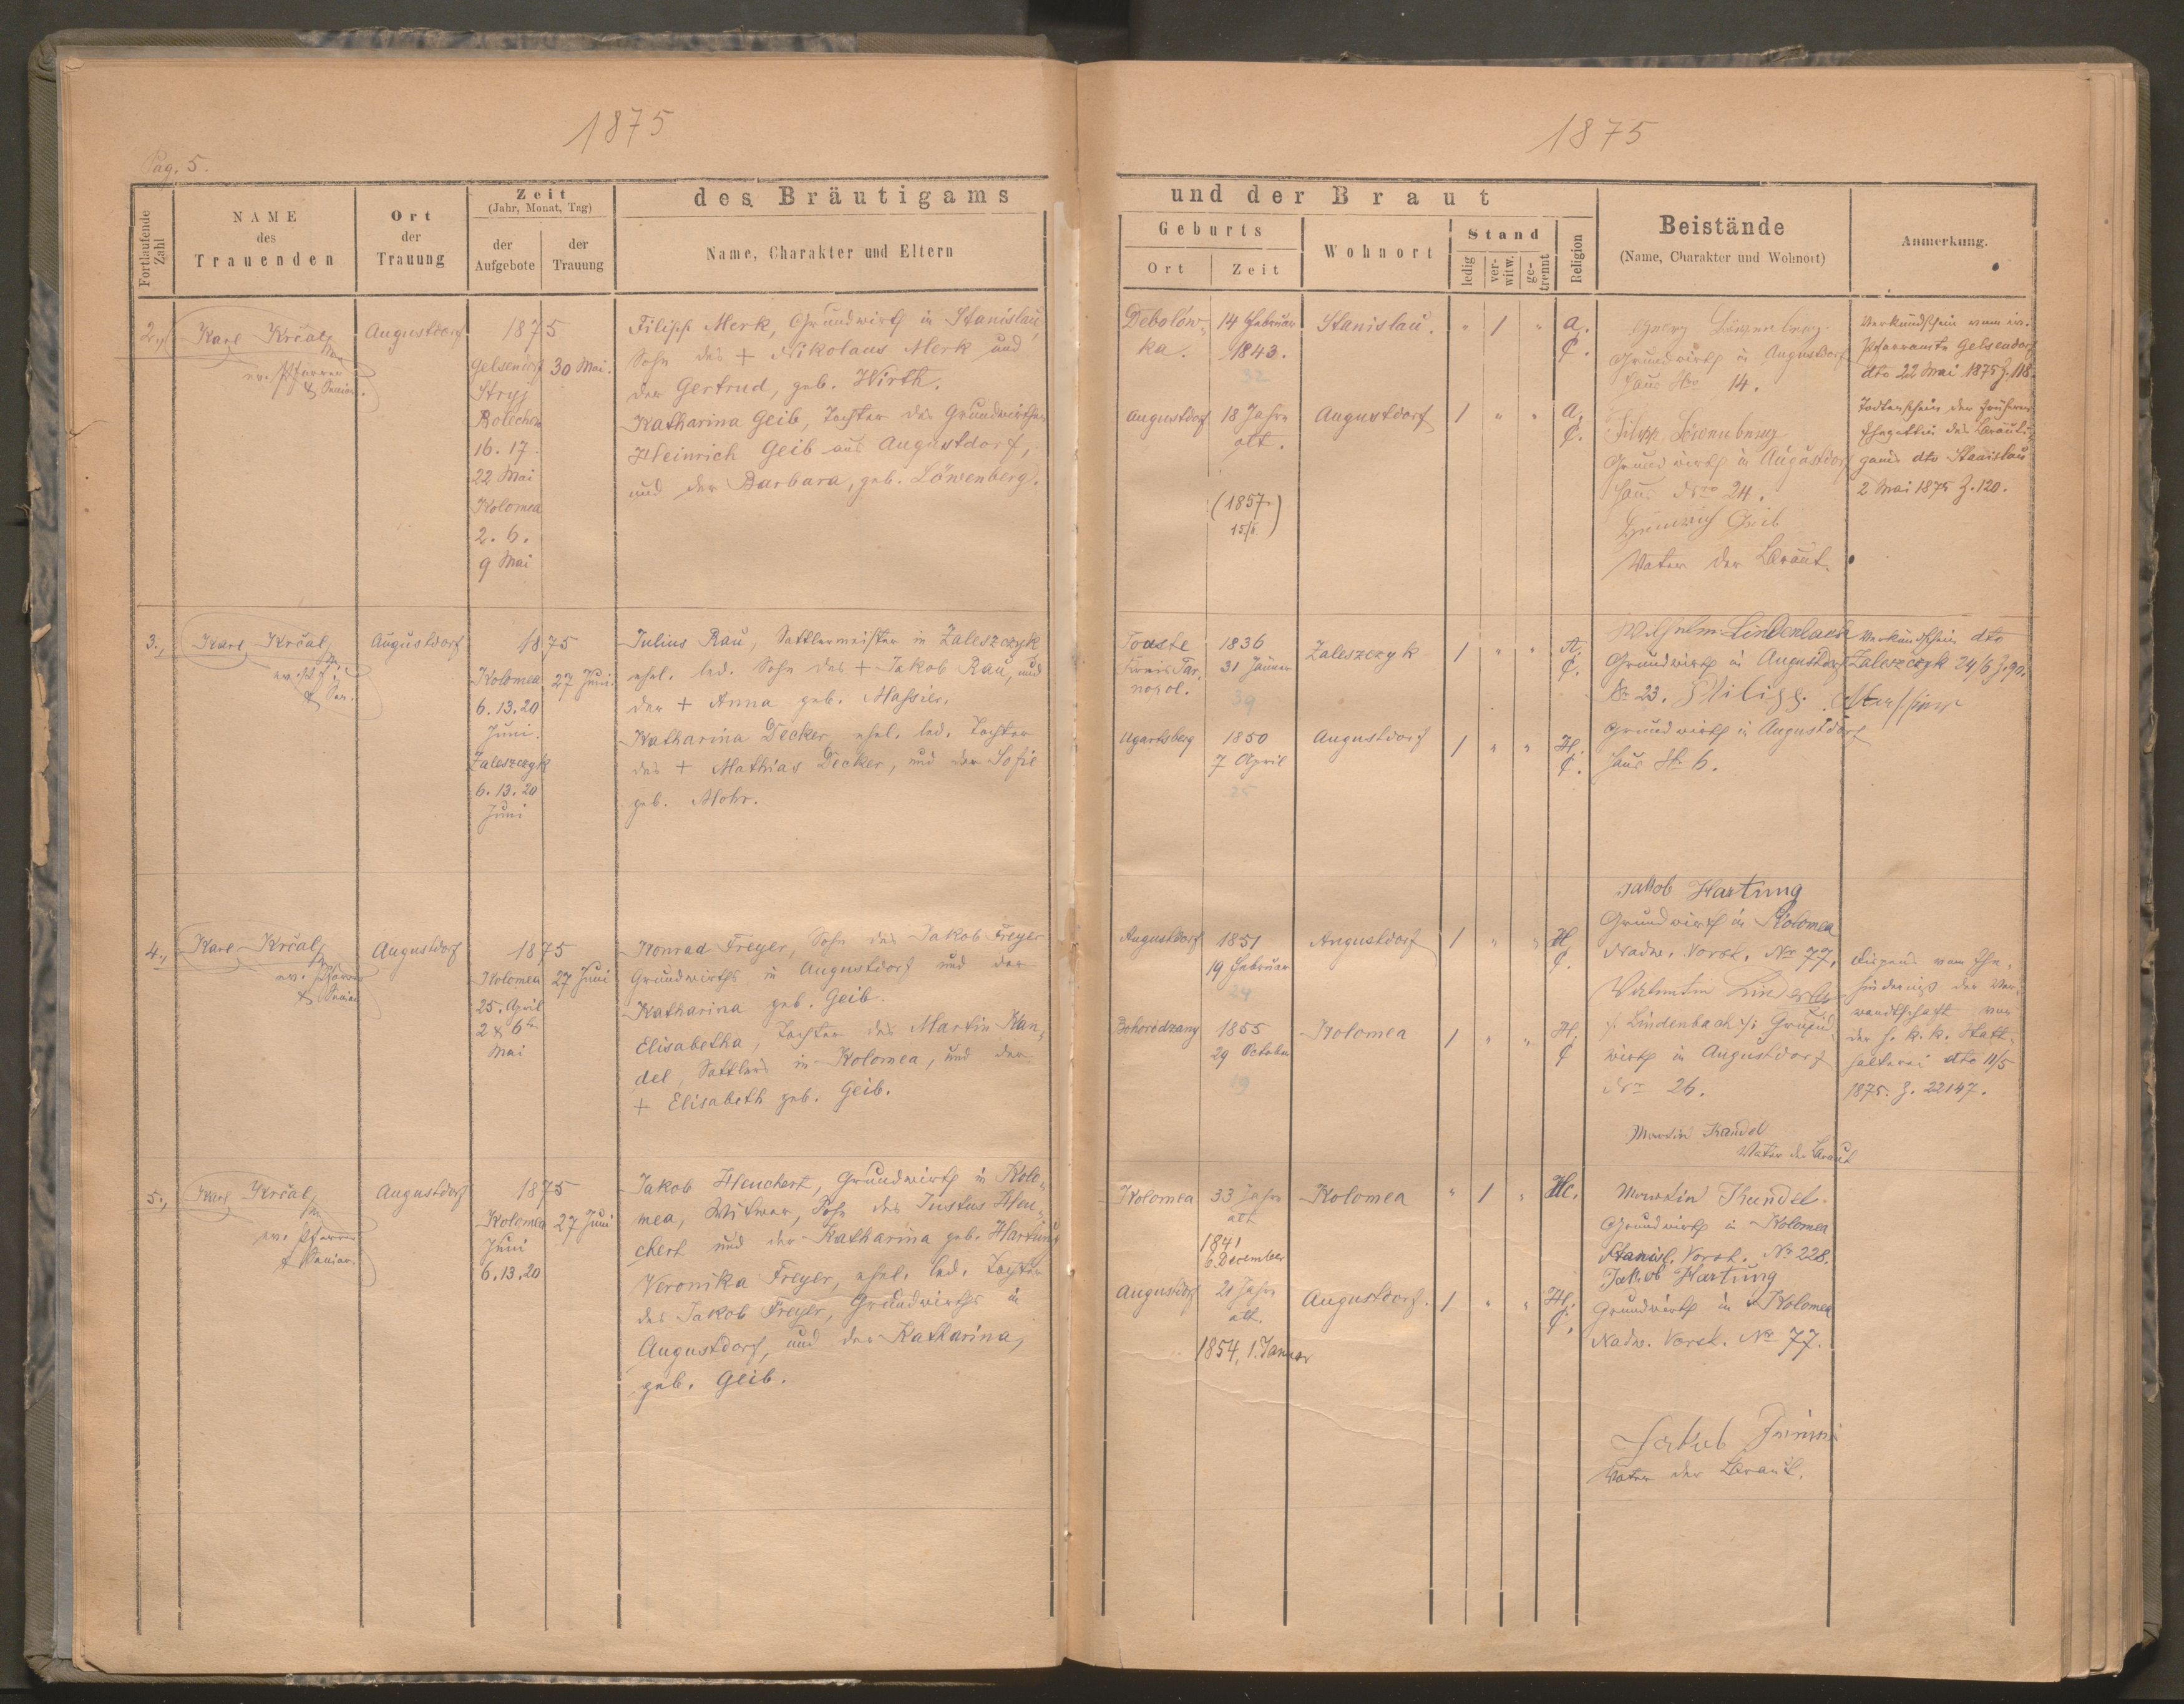 1875
1875
Pag. 5.
Fortlaufende Zahl
NAME des Trauenden
Ort der Trauung
Zeit
(Jahr, Monat, Tag)
der Aufgebote
der Trauung
des Bräutigams
Name, Charakter und Eltern
und der Braut
Geburts
Ort
Zeit
Wohnort
Stand
ledig
ver-witw.
ge-trennt
Religion
Beistände
(Name, Charakter und Wohnort)
Anmerkung.
2.,
Karl Krčal
ev. Pfarrer
& Senior.
Augustdorf
1875
Gelsendorf
Stryj
Bolechow
16. 17.
22 Mai
Kolomea
2. 6.
9 Mai
30 Mai.
Filipp Merk, Grundwirth in Stanislau,
Sohn des + Nikolaus Merk und
der Gertrud, geb. Wirth.
Katharina Geib, Tochter des Grundwirthen
Heinrich Geib aus Augustdorf,
und der Barbara, geb. Löwenberg.
Debolów-
ka.
14 Februar
1843.
32
Stanislau.
" / "
A.
C.
Augustdorf
18 Jahre
alt.
(1857.)
Augustdorf
/ " "
A.
C.
Georg Löwenberg
Grundwirth in Augustdorf
Haus Nro 14.
Filipp Löwenberg
Grundwirth in Augustdorf
Haus Nro 24.
Heinrich Geib
Vater der Braut.
Verkündschein vom ev.
Pfarramte Gelsendorf
dto 22 Mai 1875 Z. 118.
Todtenschein der früheren
Ehegattin des Bräuti-
gams dto Stanislau
2 Mai 1875 Z. 120.
3.,
Karl Krčal
ev. Pf.
& Sen.
Augustdorf
1875
Kolomea
6. 13. 20
Juni.
Zaleszczyk
6. 13. 20
Juni
27 Juni.
Julius Rau, Sattlermeister in Zaleszczyk
ehel. led. Sohn des + Jakob Rau, und
der + Anna geb. Massier.
Katharina Decker, ehel. led. Tochter
des + Mathias Decker, und der Sofie
geb. Mohr.
Touste
Kreis Tar-
nopol.
1836
31 Jänner
39
Zaleszczyk
/ " "
A.
C.
Ugartsberg
1850
7 April
25
Augustdorf
/ " "
H.
C.
Wilhelm Lindenbach
Grundwirth in Augustdorf
Nr 23. Philipp
Grundwirth in Augustdorf
Haus Nr 6.
Verkündschein dto
Zaleszczyk 24/6 Z. 90.
4.,
Karl Krčal
ev. Pfarrer
& Senior
Augustdorf
1875
Kolomea
25. April
2 & 6ten
Mai
27 Juni
Konrad Freyer, Sohn des Jakob Freyer
Grundwirths in Augustdorf und der
Katharina geb. Geib.
Elisabetha, Tochter des Martin Kan-
del, Sattlers in Kolomea, und der
+ Elisabeth geb. Geib.
Augustdorf
1851
19 Februar
24
Augustdorf
/ " "
H.
C.
Bohorodzany
1855
29 October
19
Kolomea
/ " "
H.
C
Jakob Hartung
Grundwirth in Kolomea
Nadw. Vorst. Nro 77.
Valentin
/: Lindenbach :/ Grund-
wirth in Augustdorf
Nro 26.
Martin Kandel
Vater der Braut
Dispens vom Ehe-
hinderniß der Ver-
wandtschaft von
der h. k. k. Statt-
halterei dto 11/5
1875. Z. 22147.
5.,
Karl Krčal
ev. Pfarrer
& Senior.
Augustdorf
1875
Kolomea
Juni
6. 13. 20
27 Juni
Jakob Heuchert, Grundwirth in Kolo-
mea, Witwer, Sohn des Justus Heu-
chert und der Katharina geb. Hartung
Veronika Freyer, ehel. led. Tochter
des Jakob Freyer, Grundwirths in
Augustdorf, und der Katharina,
geb. Geib.
Kolomea
33 Jahre
alt
1841
6 December
Kolomea
" / "
HC.
Augustdorf
21 Jahre
alt.
1854, 1. Januar
Augustdorf.
/ " "
H.
C.
Martin Kandel.
Grundwirth in Kolomea
Stanisl. Vorst. Nr 228.
Jakob Hartung
Grundwirth in Kolomea
Nadw. Vorst. Nr 77.
Jakob
Vater der Braut.